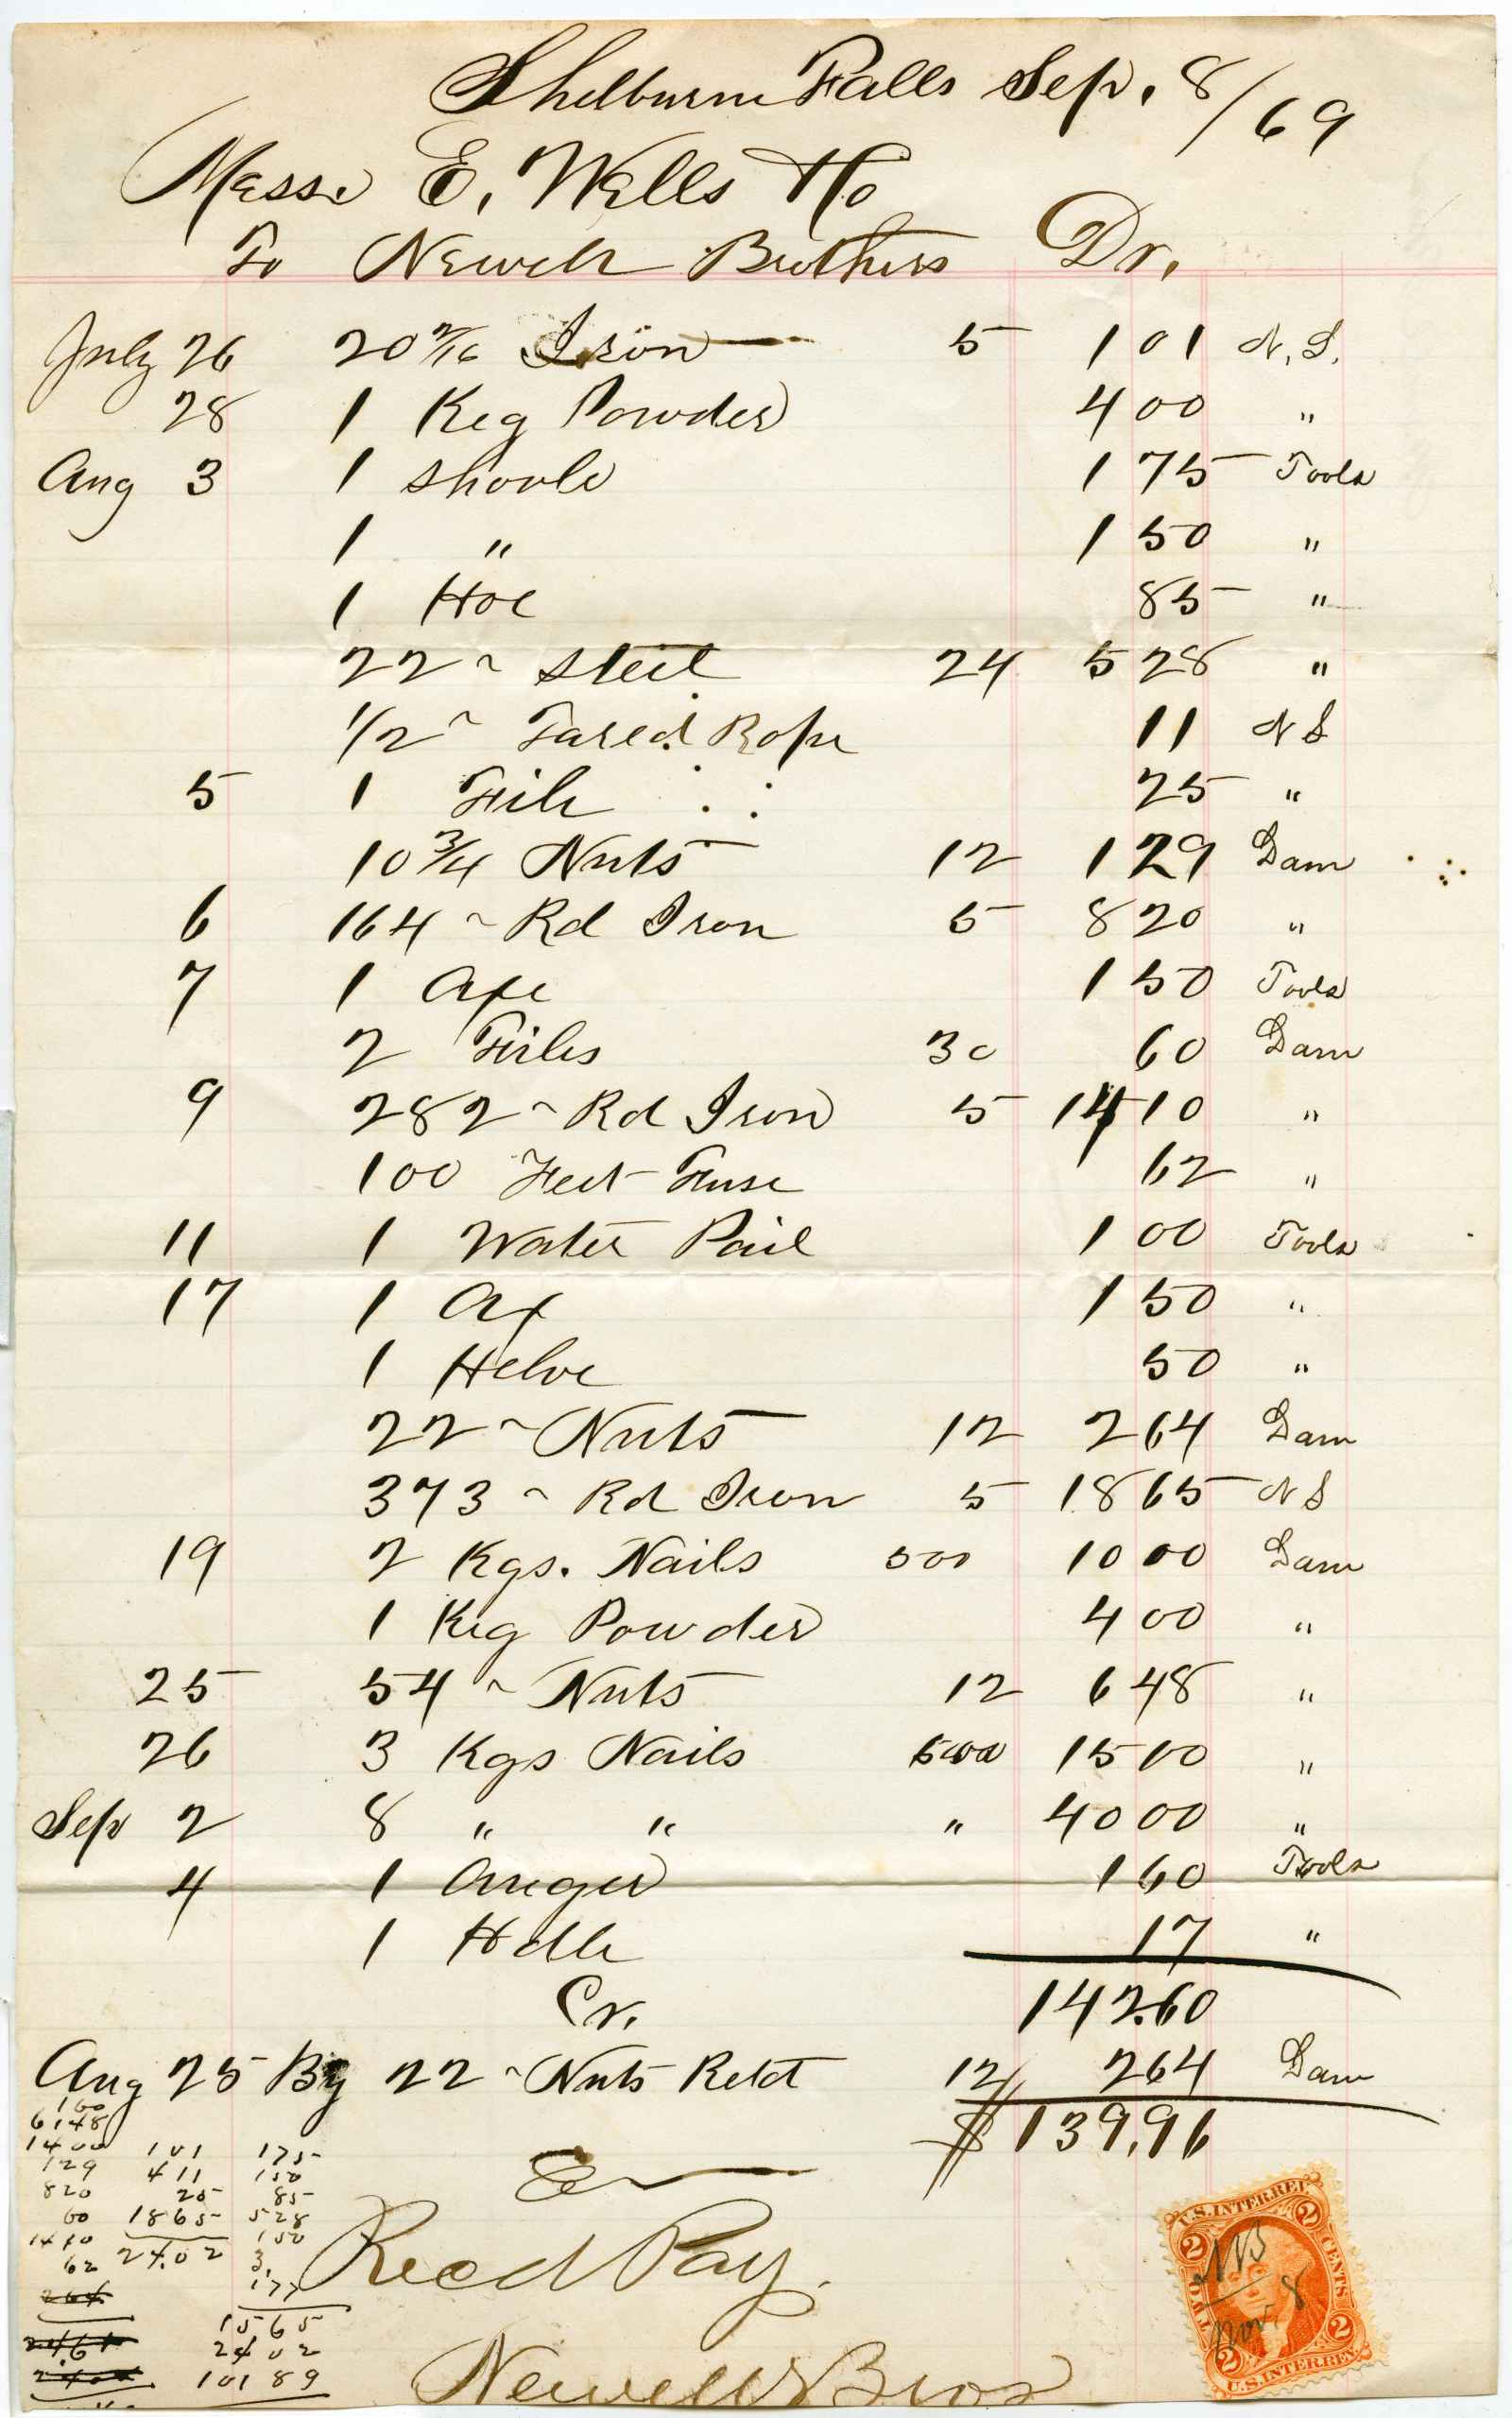 Shelburne Falls Sep. 8/69
Mess. E. Wells
To Newell Brothers Dr.
July 26 20 2/16 Iron 5 1 01 N. S.
28 1 Keg Powder 4 00 "
Aug 3 1 Shovle 1 75 Tools
1 " 1 50 "
1 Hoe 85 "
22 ~ Steel 24 5 28 "
1/2 ~ Tared Rope 11 N S
5 1 File 25 "
10 3/4 Nuts 12 1 29 Dam
6 164 ~ Rd Iron 5 8 20 "
7 1 Axe 1 50 Tools
2 Files 30 60 Dam
9 282 ~ Rd Iron 5 14 10 "
100 Feet Fuse 62 "
11 1 Water Pail 1 00 Tools
17 1 Ax 1 50 "
1 Helve 50 "
22 ~ Nuts 12 2 64 Dam
373 ~ Rd Iron 5 18 65 N S
19 2 Kgs. Nails 500 10 00 Dam
1 Keg Powder 4 00 "
25 54 ~ Nuts 12 6 48 "
26 3 Kgs Nails 500 15 00 "
Sep 2 8 " " " 40 00 "
4 1 Auger 1 60 Tools
1 Hdle 17 "
142.60
Cr.
Aug 25 By 22 ~ Nuts Retd 12 2 64 Dam
$139.96
160
6148
1400 101 175
129 411 150
820 25 85
60 1865 528
1410 24.02 150
62 3.
264 177
1565
2402
10189
Recd Pay.
Newell Bros
U.S. INTER. REV.
2 2
TWO CENTS
NB
Nov. 8
2 2
U.S. INTER. REV.